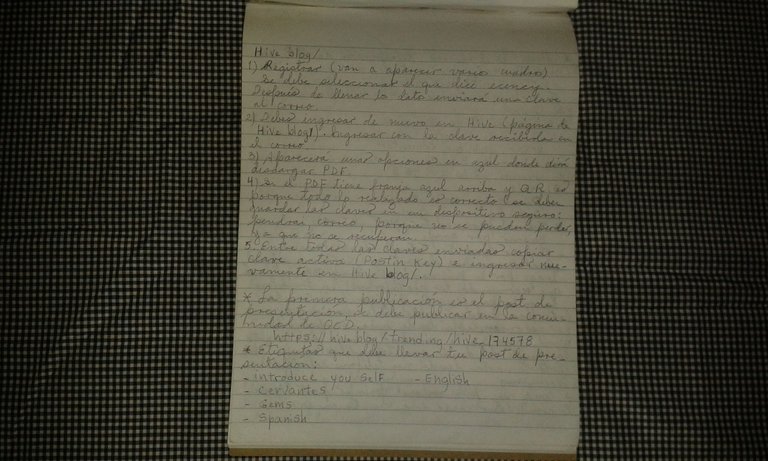 Hive blog/
1) Registrar (van a aparecer varios cuadros)
se debe seleccionar el que dice ecency.
Después de llenar lo listo enviará una clave
al correo.
2) Debes ingresar de nuevo en Hive (página de
Hive blog/). Ingresar con la clave recibida en
el correo.
3) Aparecera unas opciones en azul donde dirá
descargar PDF
4) Si el PDF tiene franja azul arriba y QR es
porque todo lo realizado es correcto se deben
guardar las claves en un dispositivo seguro:
pendrai, correo, porque no se pueden perder,
ya que no se recuperan.
5. Entre todas las claves enviadas copiar
clave activa (Postin Key) e ingresar nue-
vamente en Hive blog/.
* La primera publicación es el post de
presentación, se debe publicar en la comu-
nidad de OCD.
https://hive.blog/trending/hive_174578
* Etiquetas que debe llevar tu post de pre-
sentación:
- Introduce you self - English
- Cervantes
- Gems
- Spanish